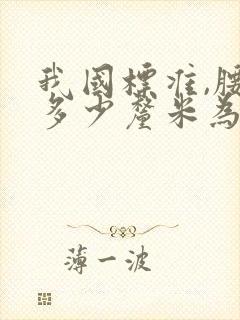 我國標准,腰
多少釐米為
薄一波